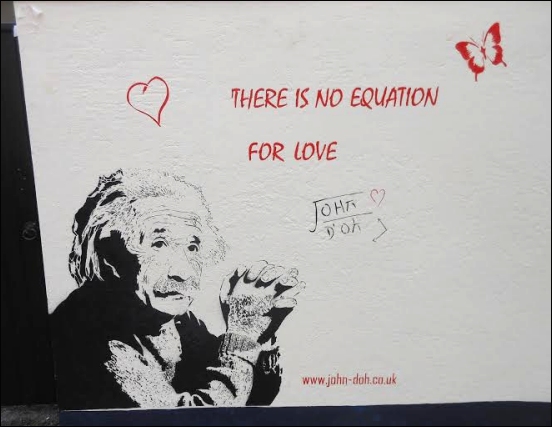 THERE IS NO EQUATION
FOR LOVE
JOHN
D'OH
www.john-doh.co.uk